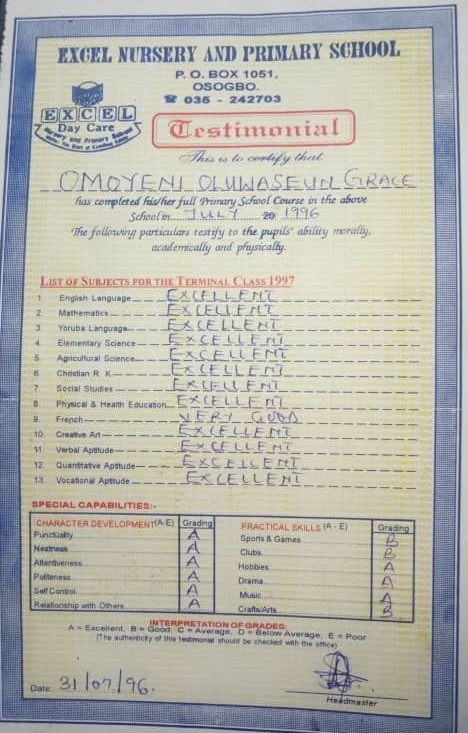 EXCEL NURSERY AND PRIMARY SCHOOL
P. O. BOX 1051,
OSOGBO.
☎ 035 - 242703
EXCEL
Day Care
Nursery and Primary School
Testimonial
This is to certify that
OMOYENI OLUWASEUN GRACE
has completed his/her full Primary School Course in the above
School in JULY 20 1996
The following particulars testify to the pupils' ability morally,
academically and physically.
LIST OF SUBJECTS FOR THE TERMINAL CLASS 1997
1. English Language EXCELLENT
2. Mathematics EXCELLENT
3. Yoruba Language EXCELLENT
4. Elementary Science EXCELLENT
5. Agricultural Science EXCELLENT
6. Christian R. K. EXCELLENT
7. Social Studies EXCELLENT
8. Physical & Health Education EXCELLENT
9. French VERY GOOD
10. Creative Art EXCELLENT
11. Verbal Aptitude EXCELLENT
12. Quantitative Aptitude EXCELLENT
13. Vocational Aptitude EXCELLENT
SPECIAL CAPABILITIES:-
CHARACTER DEVELOPMENT (A-E) Grading PRACTICAL SKILLS (A - E) Grading
Punctuality A Sports & Games B
Neatness A Clubs B
Attentiveness A Hobbies A
Politeness A Drama A
Self Control A Music A
Relationship with Others A Crafts/Arts B
INTERPRETATION OF GRADES:
A = Excellent, B = Good, C = Average, D = Below Average, E = Poor
(The authenticity of this testimonial should be checked with the office)
Date: 31/07/96.
Headmaster